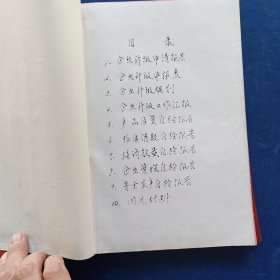 目录
1. 企业升级申请报告
2. 企业升级申报表
3. 企业升级规划
4. 企业升级工作汇报
5. 产品质量自检报告
6. 物质消耗自检报告
7. 经济效益自检报告
8. 企业管理自检报告
9. 安全生产自检报告
10. 附见材料